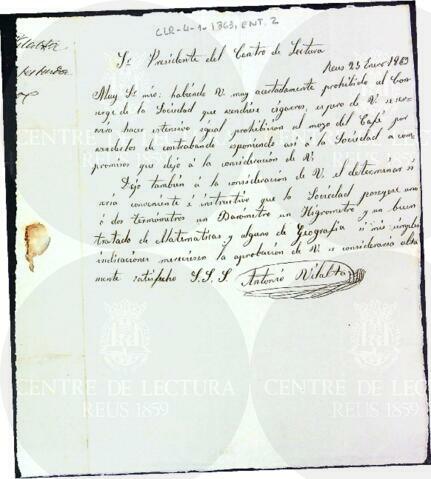 CLR-4-1-1863, ENT. 2
Vilalta
Sr Presidente del Centro de Lectura
Reus 23 Enero 1863
Muy Sr mio: habiendo V. muy acertadamente prohibido al Con-
serge de la Sociedad que vendiese cigarros, espero de V. se ser-
virá hacer estensiva igual prohibicion al mozo del Café por
venderlos de contrabando esponiendo asi á la Sociedad a com-
promisos que dejo á la consideracion de V.
Dejo tambien á la consideracion de V. el determinar si
seria conveniente é instructivo que la Sociedad poseyese uno
ó dos termómetros un Barometro un Higrometro y un buen
tratado de Matematicas y alguno de Geografia si mis simples
indicaciones mereciesen la aprobacion de V. se consideraria alta
mente satisfecho S. S. S. Antonio Vilalta
CENTRE DE LECTURA
REUS 1859